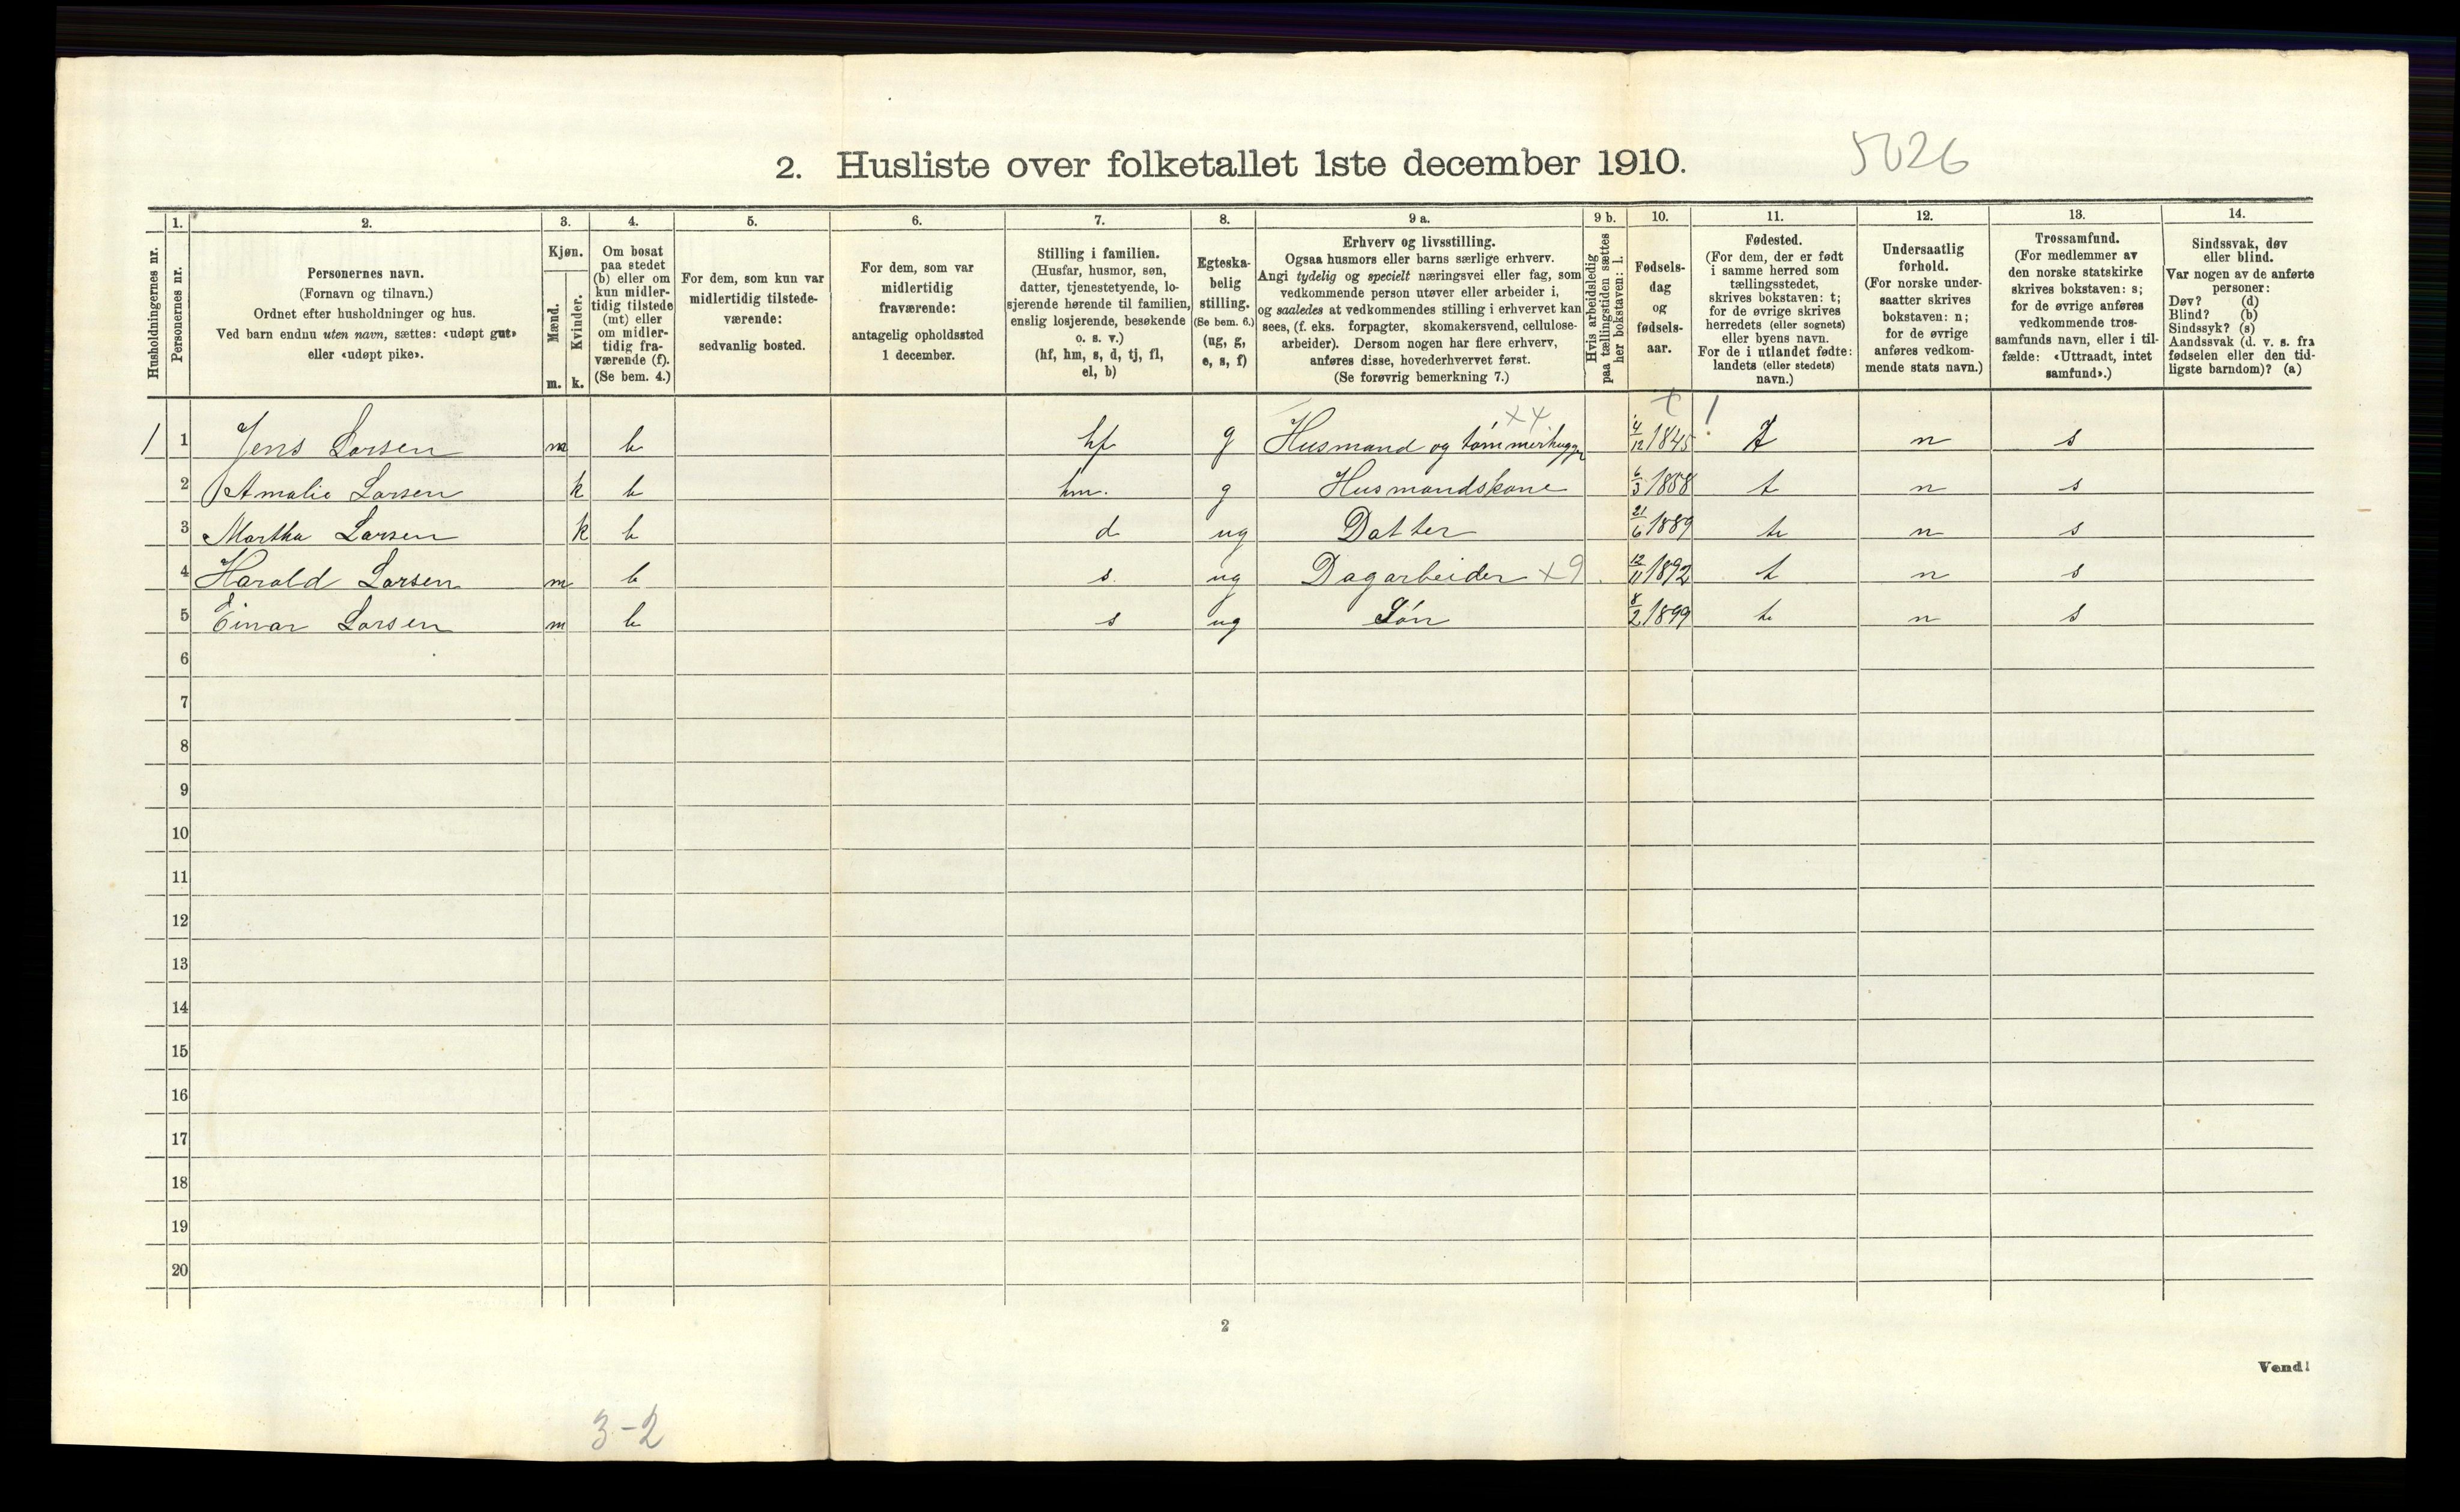 2. Husliste over folketallet 1ste december 1910.
5026
Husholdningernes nr.
1.
Personernes nr.
2.
Personernes navn.
(Fornavn og tilnavn.)
Ordnet efter husholdninger og hus.
Ved barn endnu uten navn, sættes: «udøpt gut»
eller «udøpt pike».
3.
Kjøn.
Mænd.
Kvinder.
m. k.
4.
Om bosat
paa stedet
(b) eller om
kun midler-
tidig tilstede
(mt) eller
om midler-
tidig fra-
værende (f).
(Se bem. 4.)
5.
For dem, som kun var
midlertidig tilstede-
værende:
sedvanlig bosted.
6.
For dem, som var
midlertidig
fraværende:
antagelig opholdssted
1 december.
7.
Stilling i familien.
(Husfar, husmor, søn,
datter, tjenestetyende, lo-
sjerende hørende til familien,
enslig losjerende, besøkende
o. s. v.)
(hf, hm, s, d, tj, fl,
el, b)
8.
Egteska-
belig
stilling.
(Se bem. 6.)
(ug, g,
e, s, f)
9 a.
Erhverv og livsstilling.
Ogsaa husmors eller barns særlige erhverv.
Angi tydelig og specielt næringsvei eller fag, som
vedkommende person utøver eller arbeider i,
og saaledes at vedkommendes stilling i erhvervet kan
sees, (f. eks. forpagter, skomakersvend, cellulose-
arbeider). Dersom nogen har flere erhverv,
anføres disse, hovederhvervet først.
(Se forøvrig bemerkning 7.)
9 b.
Hvis arbeidsledig
paa tællingstiden sættes
her bokstaven: l.
10.
Fødsels-
dag
og
fødsels-
aar.
11.
Fødested.
(For dem, der er født
i samme herred som
tællingsstedet,
skrives bokstaven: t;
for de øvrige skrives
herredets (eller sognets)
eller byens navn.
For de i utlandet fødte:
landets (eller stedets)
navn.)
12.
Undersaatlig
forhold.
(For norske under-
saatter skrives
bokstaven: n;
for de øvrige
anføres vedkom-
mende stats navn.)
13.
Trossamfund.
(For medlemmer av
den norske statskirke
skrives bokstaven: s;
for de øvrige anføres
vedkommende tros-
samfunds navn, eller i til-
fælde: «Uttraadt, intet
samfund».)
14.
Sindssvak, døv
eller blind.
Var nogen av de anførte
personer:
Døv? (d)
Blind? (b)
Sindssyk? (s)
Aandssvak (d. v. s. fra
fødselen eller den tid-
ligste barndom)? (a)
x4 x !
1 1 Jens Larsen m b hf g Husmand og tømmerhugger 4/12 1845 t n s
2 Amalie Larsen k b hm. g Husmandskone 6/3 1858 t n s
3 Martha Larsen k b d ug Datter 21/6 1889 t n s
4 Harald Larsen m b s. ug Dagarbeider x9 12/11 1892 t n s
5 Einar Larsen m b s ug Søn 8/2 1899 t n s
6
7
8
9
10
11
12
13
14
15
16
17
18
19
20
2
Vend!
3-2